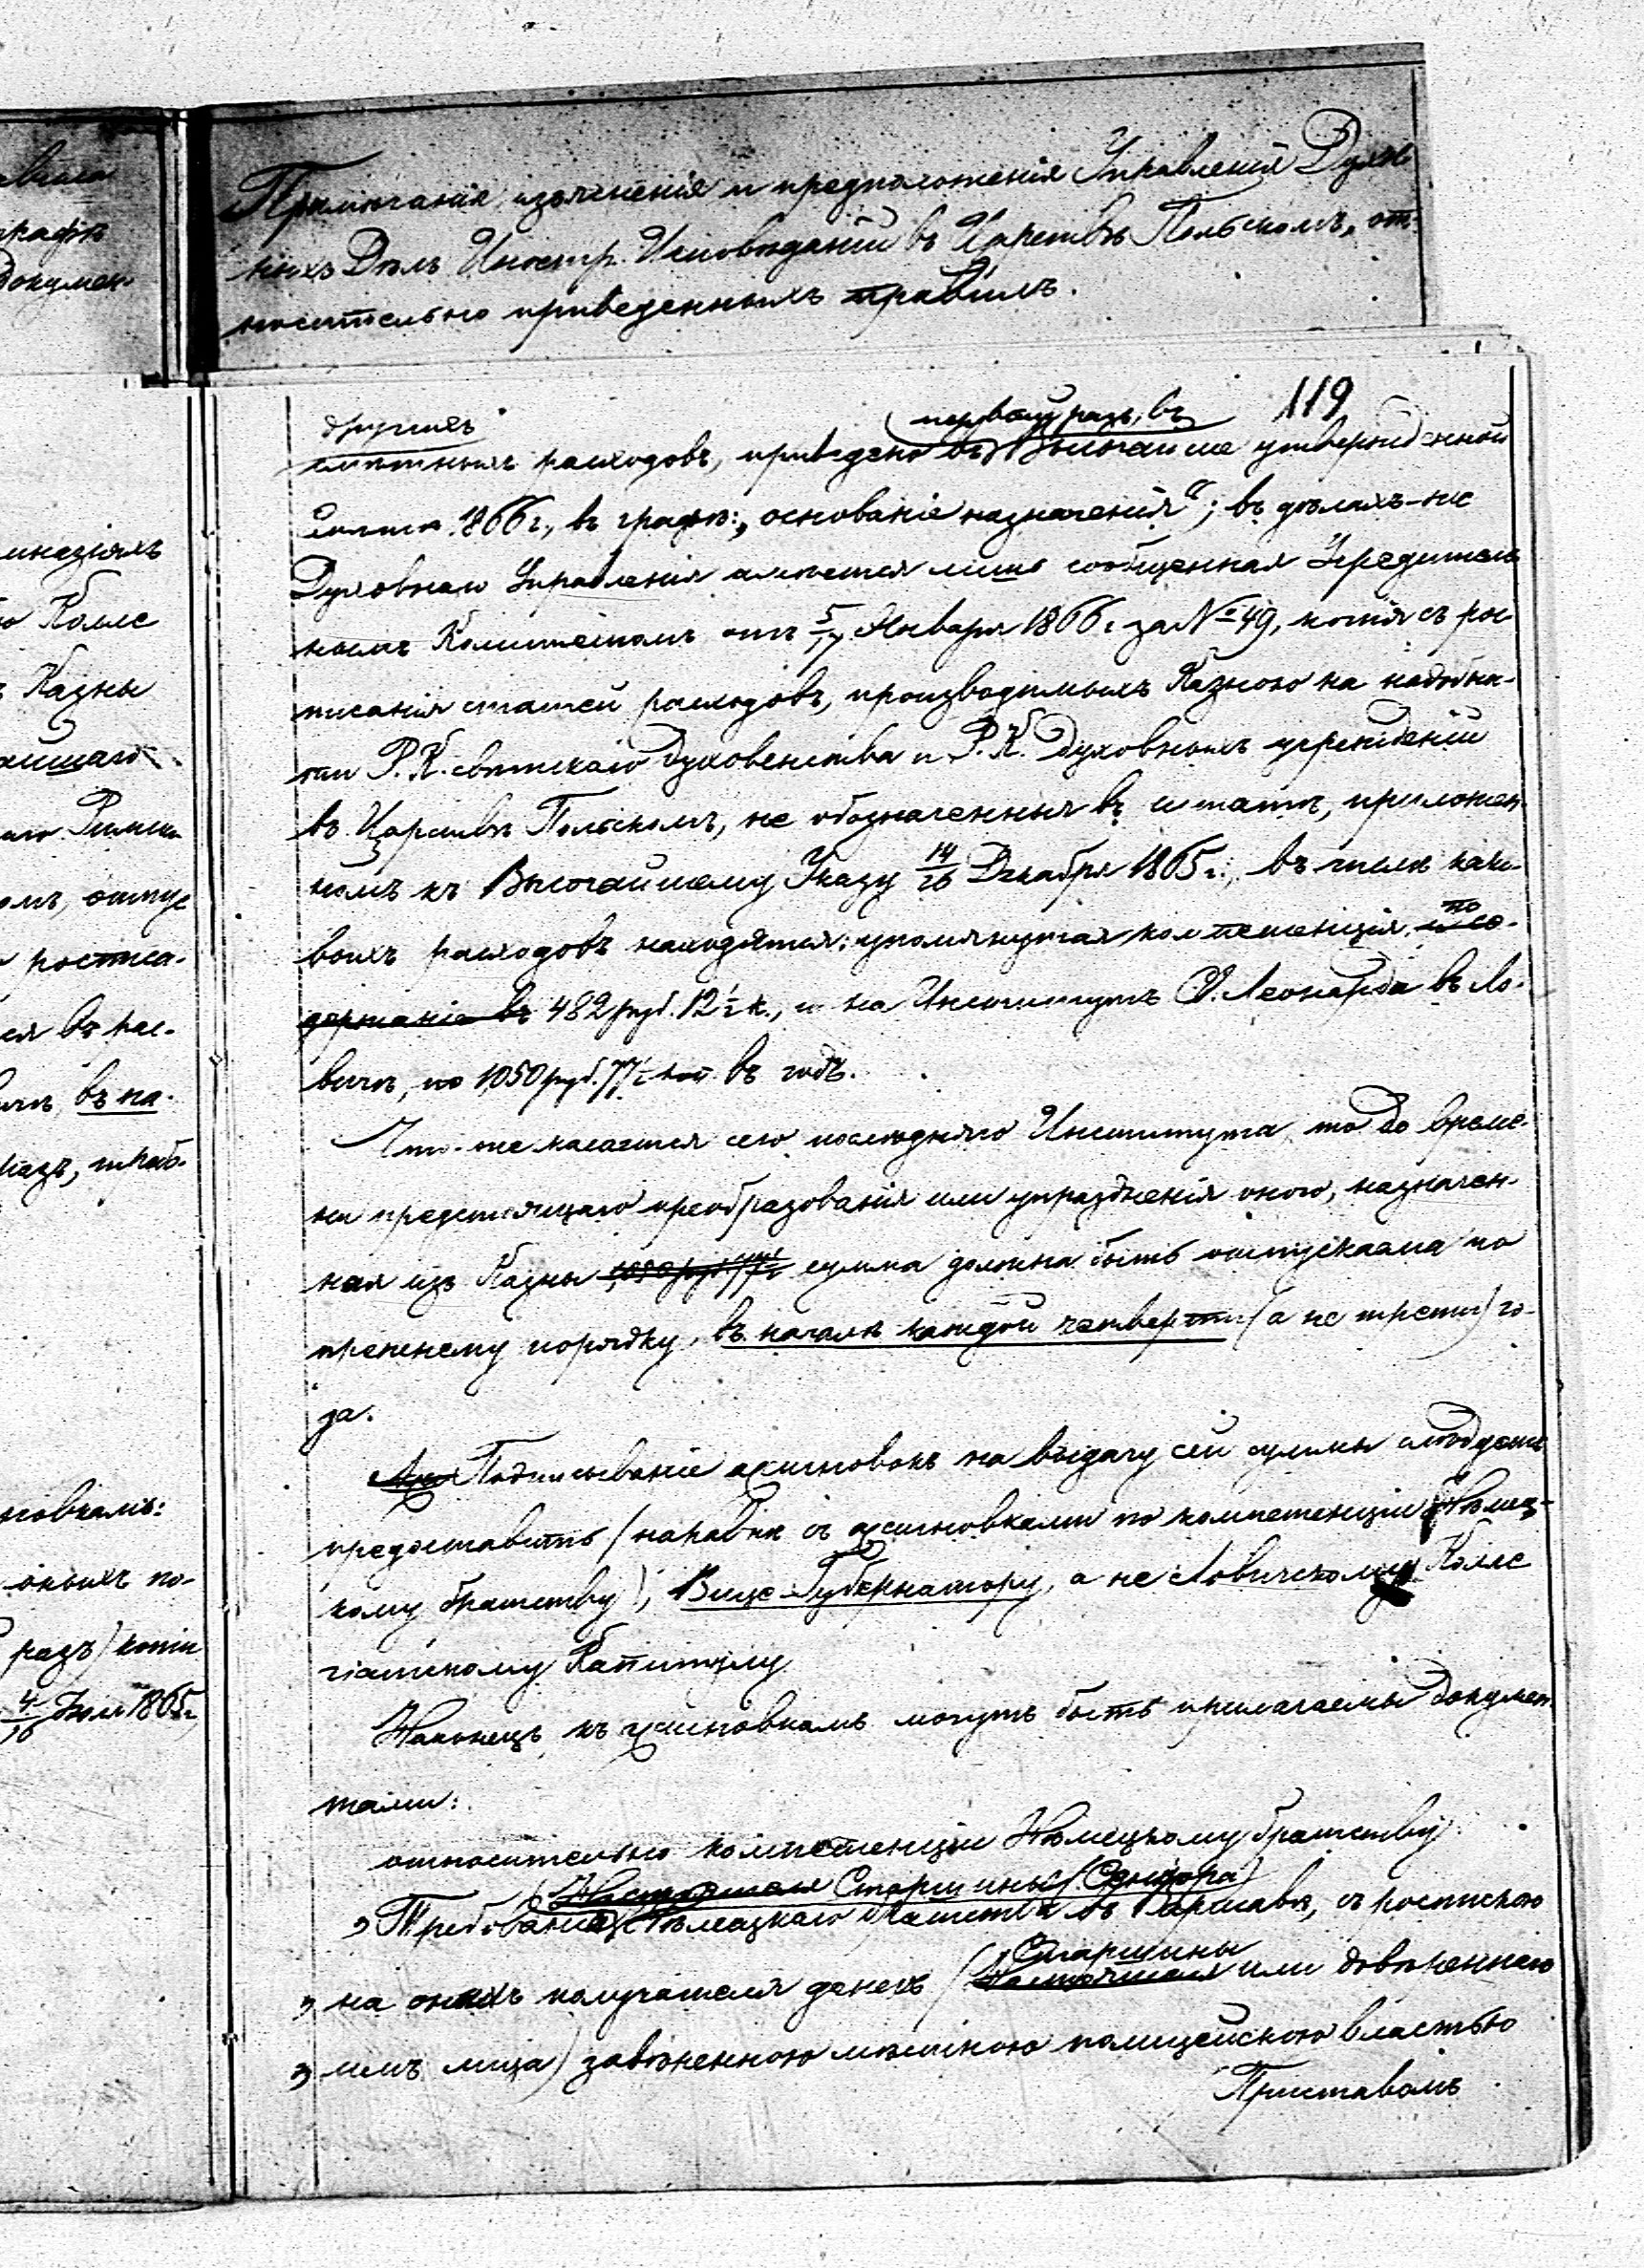 Примѣчанія, изъясненія и предположенія Управленія Духов-
ныхъ Дѣлъ Иностр. Исповѣданій въ Царствѣ Польскомъ, от-
носительно приведенныхъ правилъ.
119
другихъ первый разъ, въ
смѣтныхъ расходовъ, приведено въ Высочайше утвержденной
Смѣтѣ 1866 г., въ графѣ: „основаніе назначенія“; въ дѣлахъ-же
Духовнаго Управленія имѣется лишь сообщенная Учредитель
нымъ Комитетомъ отъ 5/17 Января 1866 г. за № 49, копія съ рос-
писанія статей расходовъ, производимыхъ Казною на надобно-
сти Р. К. свѣтскаго Духовенства и Р. К. Духовныхъ учрежденій
въ Царствѣ Польскомъ, не обозначенныя въ штатѣ, приложен-
номъ къ Высочайшему Указу 14/26 Декабря 1865 г., въ числѣ како-
выхъ расходовъ находятся: упомянутая компетенція, по
и со-
держаніе въ 482 руб. 12½ к., и на Институтъ Св. Леонарда въ Ло-
вичѣ, по 1,050 руб. 77½ коп. въ годъ.
Что-же касается сего послѣдняго Института, то до време-
ни предстоящаго преобразованія или упраздненія онаго, назначен-
ная изъ Казны 1,050 руб. 77½ сумма должна быть отпускаема по
прежнему порядку, въ началѣ каждой четверти (а не трети) го-
да.
Подписываніе ассигновокъ на выдачу сей суммы слѣдуетъ
предоставить (наравнѣ съ ассигновками по компетенціи Нѣмец-
кому братству), Вице-Губернатору, а не Ловичскому Колле
гіатскому Капитулу.
Наконецъ, къ ассигновкамъ могутъ быть прилагаемы докумен
тами:
относительно компетенціи Нѣмецкому братству
Настоятеля Старшины (Сеніора)
„ Требованія Нѣмецкаго братства въ Варшавѣ, съ роспискою
Старшины
„ на оныхъ получателя денегъ (Настоятеля или довѣреннаго
„ имъ лица) завѣренною мѣстною полицейскою властью
Приставомъ
инназіяхъ
Колле
Казны
ростиса-
ся въ рас-
въ на-
новкамъ:
оныхъ по-
разъ) копіи
4/16 Іюля 1865 г.